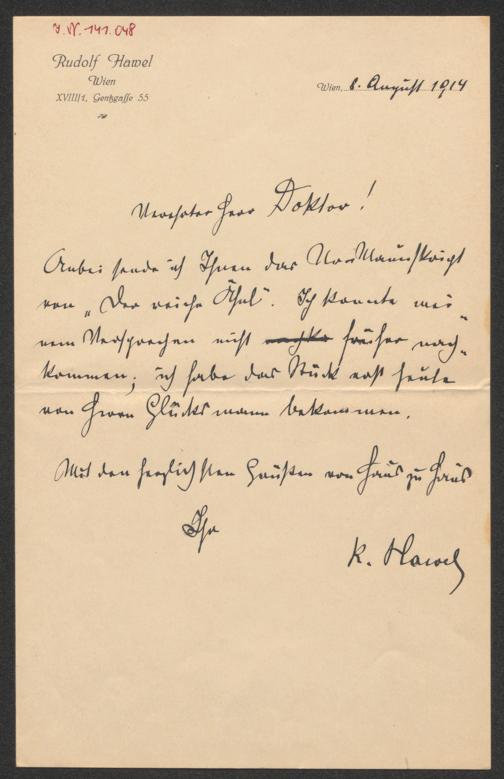 J.N. 141.048
Rudolf Hawel
Wien
XVIII/1, Gentzgasse 55
Wien, 8. August 1914
Verehrter Herr Doktor!
Anbei sende ich Ihnen das Ur-Manuskript
von „Der reiche Ähnl“. Ich konnte mei-
nem Versprechen nicht früher nach-
kommen; ich habe das Stück erst heute
von Herrn Glücksmann bekommen.
Mit den herzlichsten Grüßen von Haus zu Haus
Ihr
R. Hawel